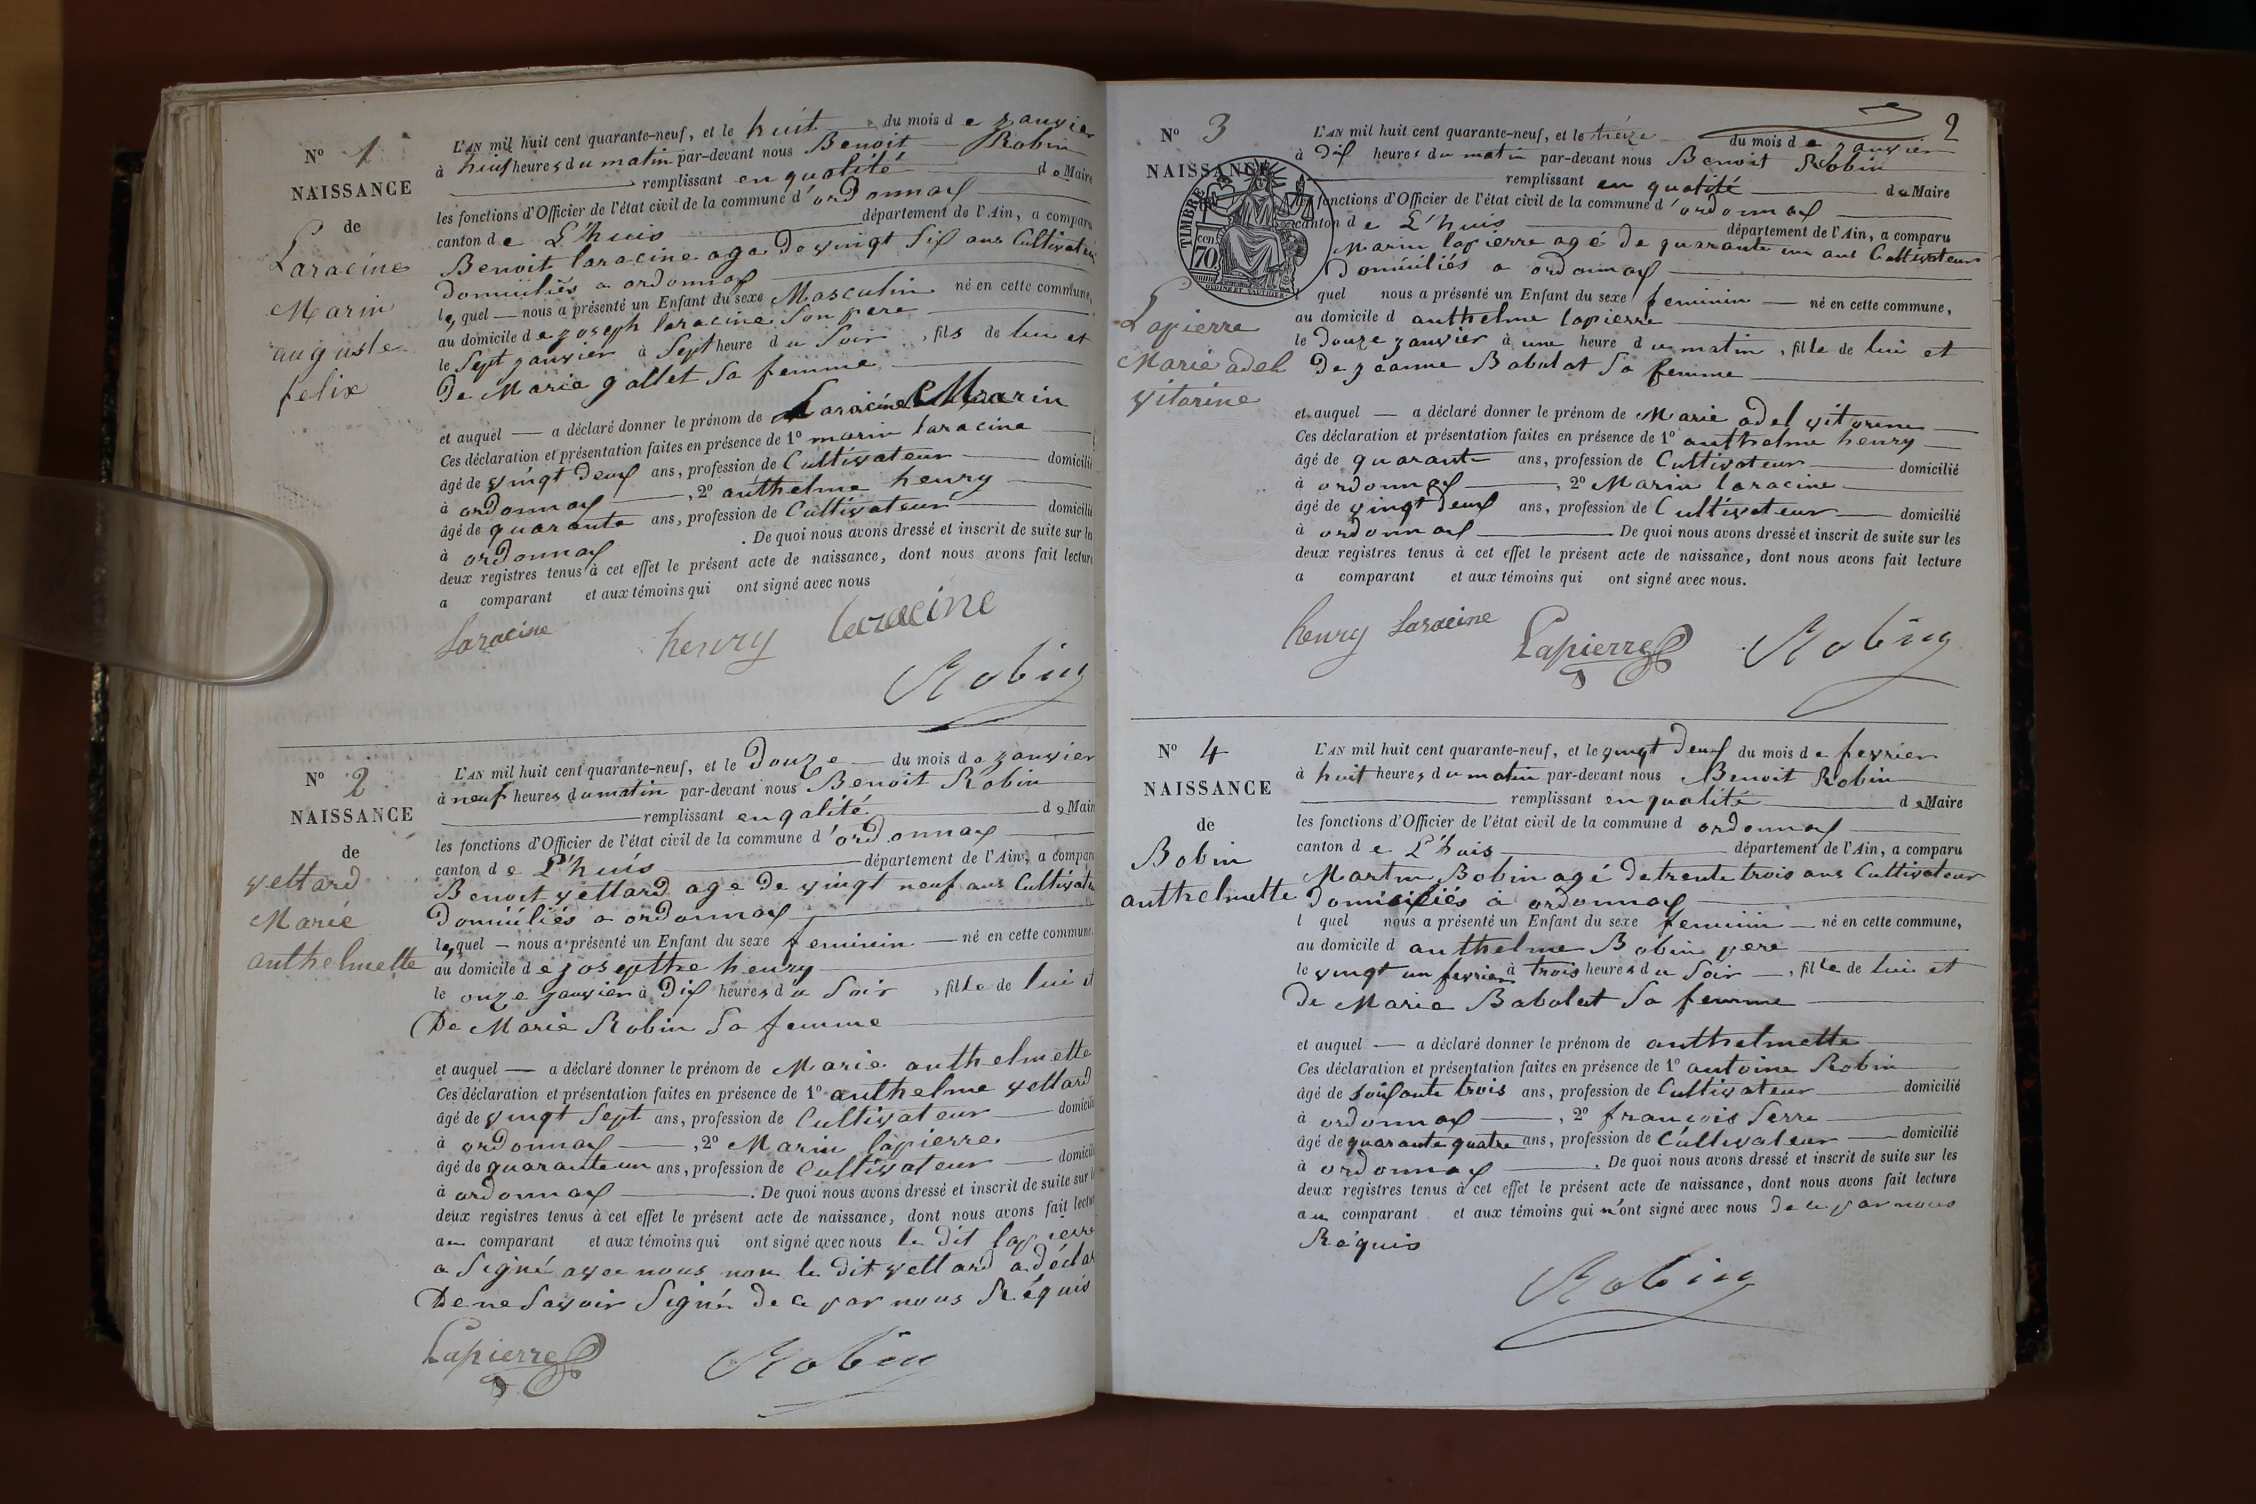 N° 1
NAISSANCE
de
Laracine
Marin
auguste
felix
L'AN mil huit cent quarante-neuf, et le huit du mois de janvier
à huit heures du matin par-devant nous Benoit Robin
remplissant en qualité de Maire
les fonctions d'Officier de l'état civil de la commune d'ordonnax
canton de L'huis département de l'Ain, a comparu
Benoit laracine age de vingt six ans Cultivateur
Domiciliés a ordonnax
lequel nous a présenté un Enfant du sexe Masculin né en cette commune,
au domicile de joseph laracine Son pere
le Sept janvier à Sept heure du Soir, fils de lui et
De Marie gallet Sa femme
et auquel a déclaré donner le prénom de Laracine Marin
Ces déclaration et présentation faites en présence de 1° marin laracine
âgé de vingt deux ans, profession de Cultivateur domicilié
à ordonnax, 2° anthelme henry
âgé de quarante ans, profession de Cultivateur domicilié
à ordonnax. De quoi nous avons dressé et inscrit de suite sur les
deux registres tenus à cet effet le présent acte de naissance, dont nous avons fait lecture
a comparant et aux témoins qui ont signé avec nous
Laracine henry laracine
Robin
N° 2
NAISSANCE
de
vettard
Marie
anthelmette
L'AN mil huit cent quarante-neuf, et le Douze du mois de janvier
à neuf heures du matin par-devant nous Benoit Robin
remplissant en qalité de Maire
les fonctions d'Officier de l'état civil de la commune d'ordonnax
canton de L'huis département de l'Ain, a comparu
Benoit vettard age De vingt neuf ans Cultivateur
Domiciliés a ordonnax
lequel nous a présenté un Enfant du sexe feminin né en cette commune,
au domicile de josepthe henry
le onze janvier à Dix heures du Soir, fille de lui et
De Marie Robin Sa femme
et auquel a déclaré donner le prénom de Marie anthelmette
Ces déclaration et présentation faites en présence de 1° anthelme vettard
âgé de vingt Sept ans, profession de Cultivateur domicilié
à ordonnax, 2° Marin lapierre
âgé de quarante un ans, profession de Cultivateur domicilié
à ordonnax. De quoi nous avons dressé et inscrit de suite sur les
deux registres tenus à cet effet le présent acte de naissance, dont nous avons fait lecture
au comparant et aux témoins qui ont signé avec nous le dit lapierre
a Signé avec nous non le dit vettard a déclaré
De ne Savoir Signé de ce par nous Réquis
Lapierre Robin
2
N° 3
NAISSANCE
TIMBRE
70 cen
Lapierre
Marie adel
vitorine
L'AN mil huit cent quarante-neuf, et le treize du mois de janvier
à Dix heures du matin par-devant nous Benoit Robin
remplissant en qualité de Maire
les fonctions d'Officier de l'état civil de la commune d'ordonnax
canton de L'huis département de l'Ain, a comparu
Marin lapierre agé de quarante un ans Cultivateur
Domiciliés a ordonnax
l quel nous a présenté un Enfant du sexe feminin né en cette commune,
au domicile d anthelme lapierre
le Douze janvier à une heure du matin, fille de lui et
De jeanne Babolat Sa femme
et auquel a déclaré donner le prénom de Marie adel vitorine
Ces déclaration et présentation faites en présence de 1° anthelme henry
âgé de quarante ans, profession de Cultivateur domicilié
à ordonnax, 2° Marin laracine
âgé de vingt deux ans, profession de Cultivateur domicilié
à ordonnax. De quoi nous avons dressé et inscrit de suite sur les
deux registres tenus à cet effet le présent acte de naissance, dont nous avons fait lecture
a comparant et aux témoins qui ont signé avec nous.
henry Laracine Lapierre Robin
N° 4
NAISSANCE
de
Bobin
anthelmette
L'AN mil huit cent quarante-neuf, et le vingt Deux du mois de fevrier
à huit heures du matin par-devant nous Benoit Robin
remplissant en qualité de Maire
les fonctions d'Officier de l'état civil de la commune d ordonnax
canton de L'huis département de l'Ain, a comparu
Martin Bobin agé de trente trois ans Cultivateur
Domiciliés à ordonnax
l quel nous a présenté un Enfant du sexe feminin né en cette commune,
au domicile d anthelme Bobin pere
le vingt un fevrier à trois heures du Soir, fille de lui et
De Marie Babolat Sa femme
et auquel a déclaré donner le prénom de anthelmette
Ces déclaration et présentation faites en présence de 1° antoine Robin
âgé de Soixante trois ans, profession de Cultivateur domicilié
à ordonnax, 2° françois Serre
âgé de quarante quatre ans, profession de Cultivateur domicilié
à ordonnax. De quoi nous avons dressé et inscrit de suite sur les
deux registres tenus à cet effet le présent acte de naissance, dont nous avons fait lecture
au comparant et aux témoins qui n'ont signé avec nous de ce par nous
Réquis
Robin